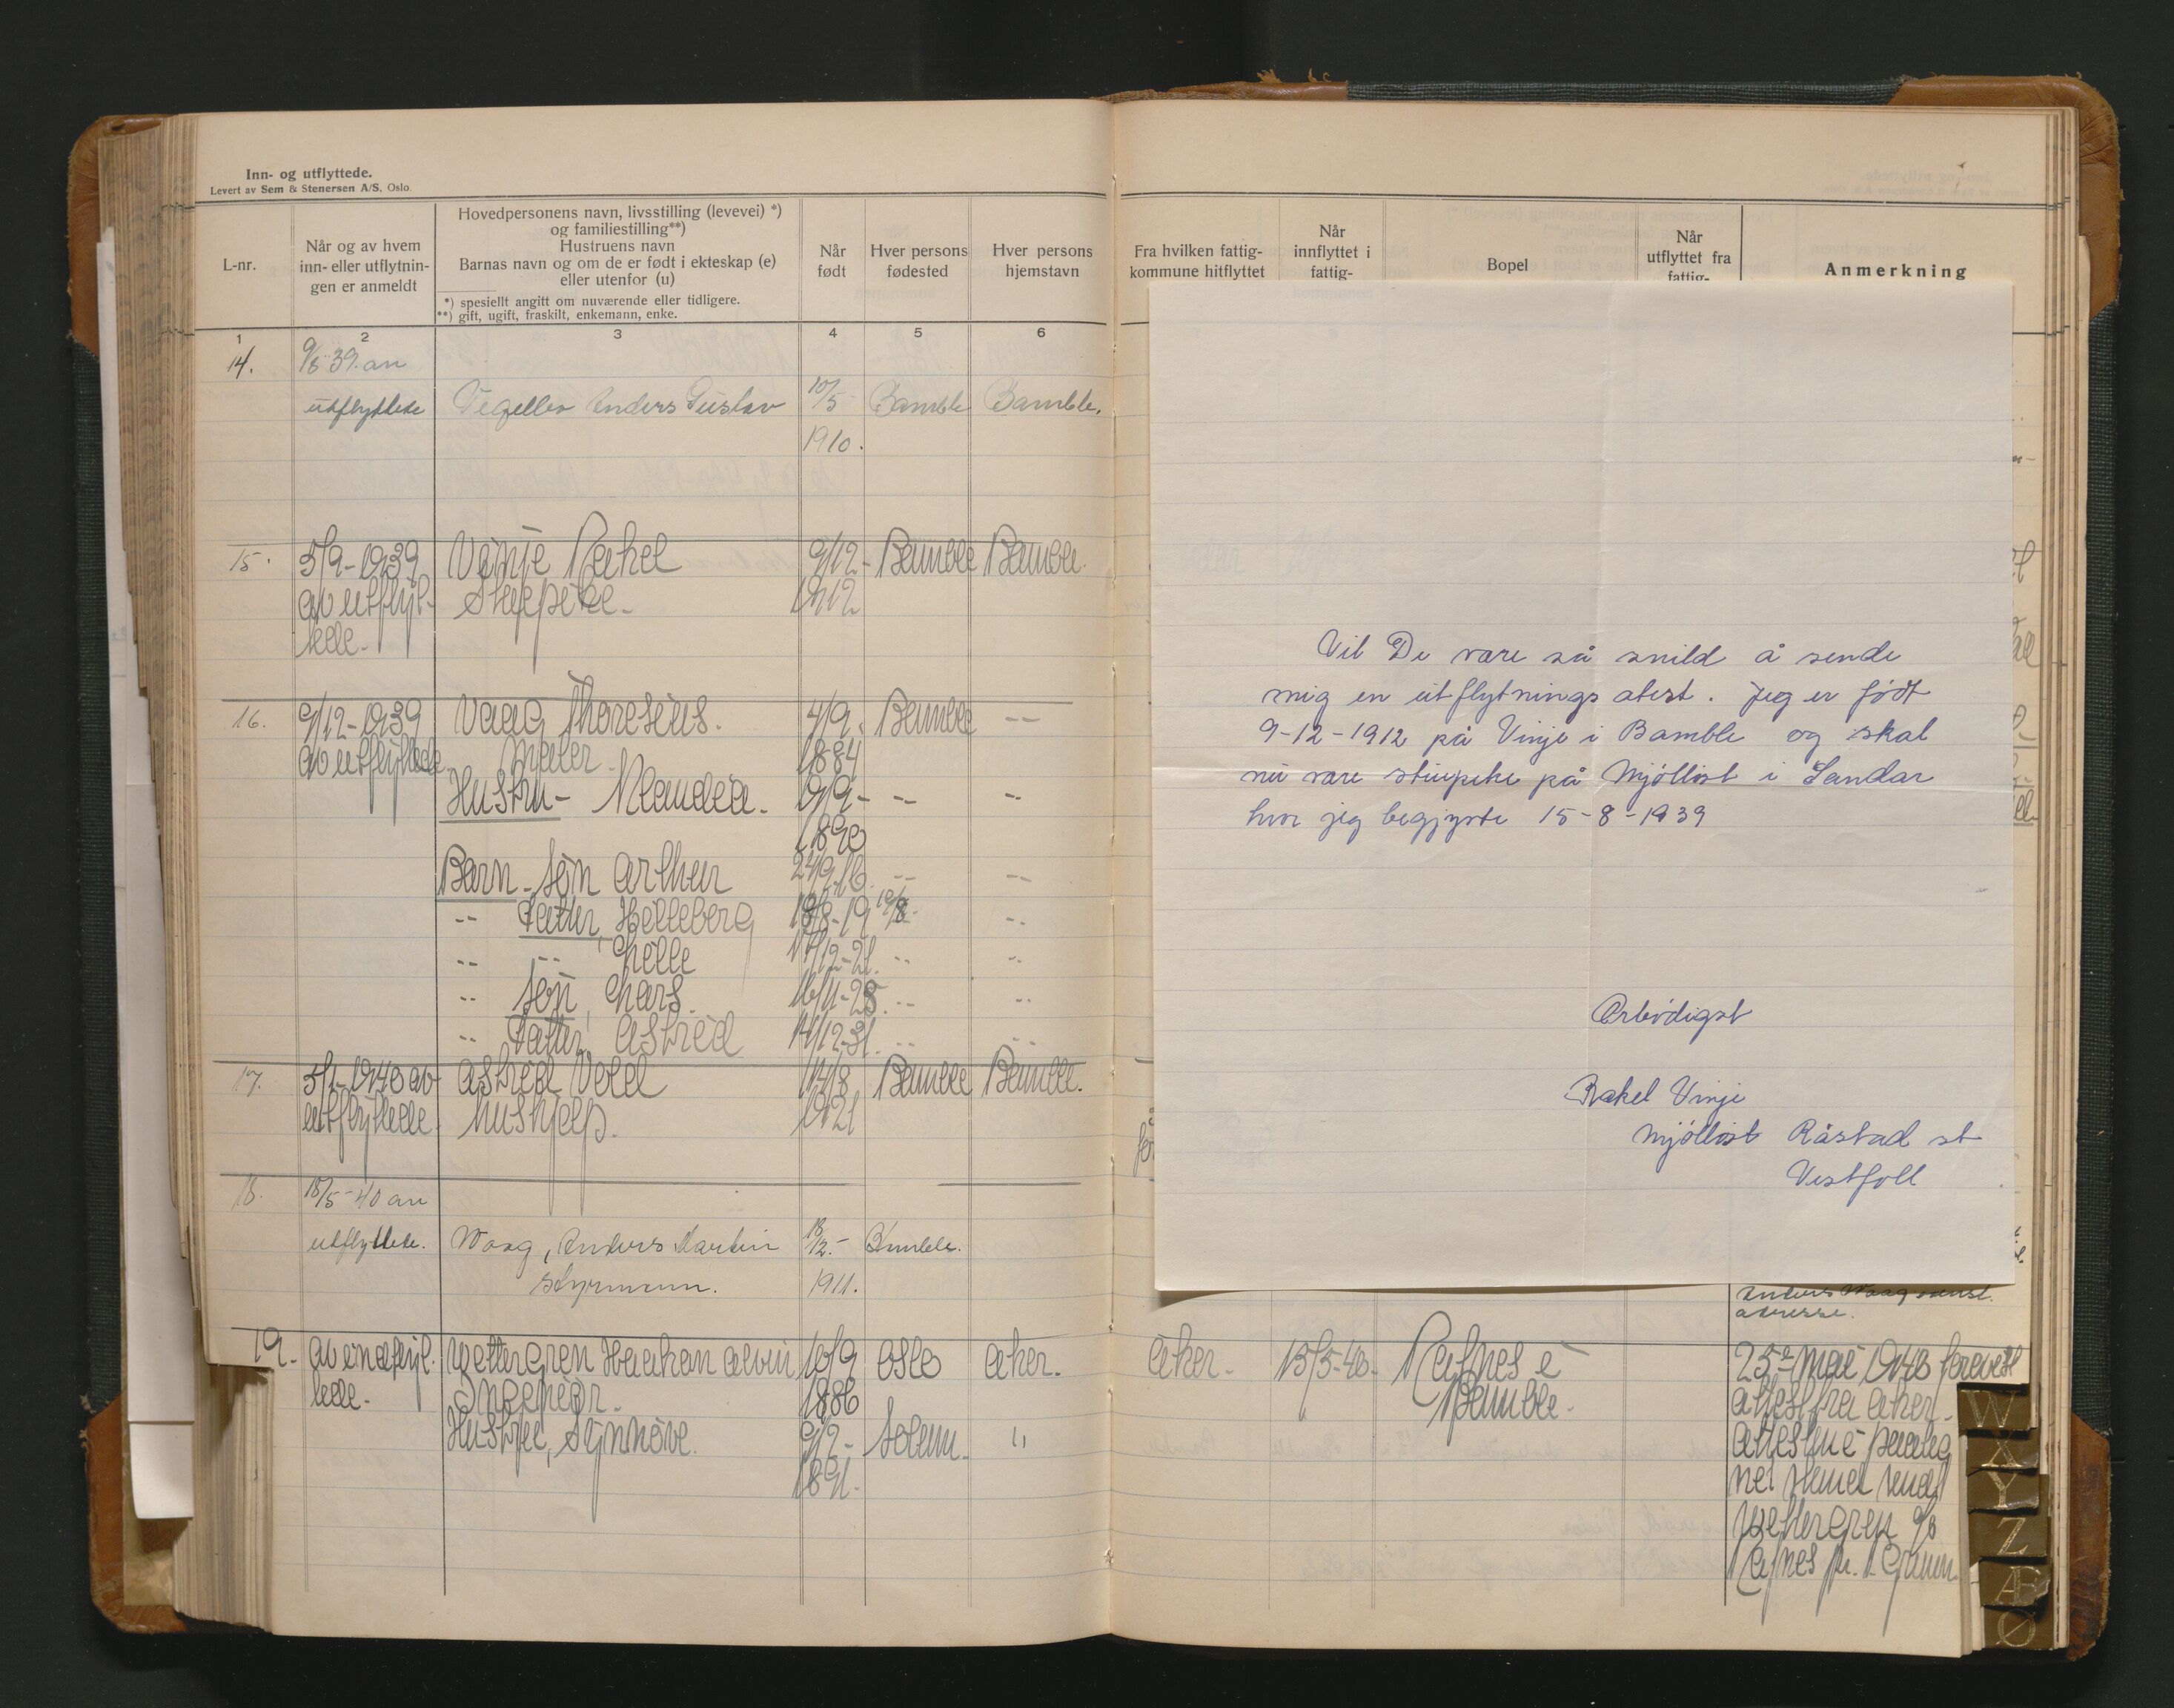 Inn- og utflyttede.
Levert av Sem & Stenersen A/S, Oslo.
L-nr.
Når og av hvem
inn- eller utflytnin-
gen er anmeldt
Hovedpersonens navn, livsstilling (levevei) *)
og familiestilling**)
Hustruens navn
Barnas navn og om de er født i ekteskap (e)
eller utenfor (u)
*) spesielt angitt om nuværende eller tidligere.
**) gift, ugift, fraskilt, enkemann, enke.
Når
født
Hver persons
fødested
Hver persons
hjemstavn
Fra hvilken fattig-
kommune hitflyttet
Når
innflyttet i
fattig-
Bopel
Når
utflyttet fra
fattig-
Anmerkning
1 2 3 4 5 6
14. 9/8 39. av
utflyttede Anders Gustav 10/5 Bamble Bamble.
1910.
15. 5/9-1939 Vinje Rakel 9/12- Bamble Bamble.
av utflyt- Stuepike- 1912
tede-
16. 9/12-1939 Vaag Thoresius. 4/9. Bamble -"-
av utflyttede Maler- 1884
Hustru- Klaudia. 19/9- -"- -"-
1890
Barn- Søn Arthur 24/9-16. -"- -"-
-"- Datter, Helleborg 18/8-19 -"-
-"- -"- 17/12-21. -"- -"-
-"- Søn, 16/11-28. -"- -"-
-"- Datter, Astrid 14/12-31. -"- -"-
17. 5/1-1940 av Astrid Vold 14/8 Bamble Bamble.
utflyttede Hushjelp. 1921
18. 18/5-40 av
utflyttede. Waag, Anders Martin 18/12.- Bamble.
styrmann. 1911.
Anders Waag
adresse.
19. Av innflyt- Wettergren Haakon Alvin 10/9 Oslo Aker. Aker. 15/5-40. Rafnes i 25de mai 1940 forevist
tede- Ingeniør. 1886 Bamble. attest fra Aker-
Hustru, Synnøve. 9/12- Solum. " Attest
1891.
Wettergren
Rafnes
Vil De være så snild å sende
mig en utflytnings atest. Jeg er født
9-12-1912 på Vinje i Bamble og skal
nu være stuepike på Mjølløst i Sandar
hvor jeg begjynte 15-8-1939
Ærbødigst
Rakel Vinje
Mjølløst Råstad st
Vestfoll
W
X
Y
Z
Æ
Ø